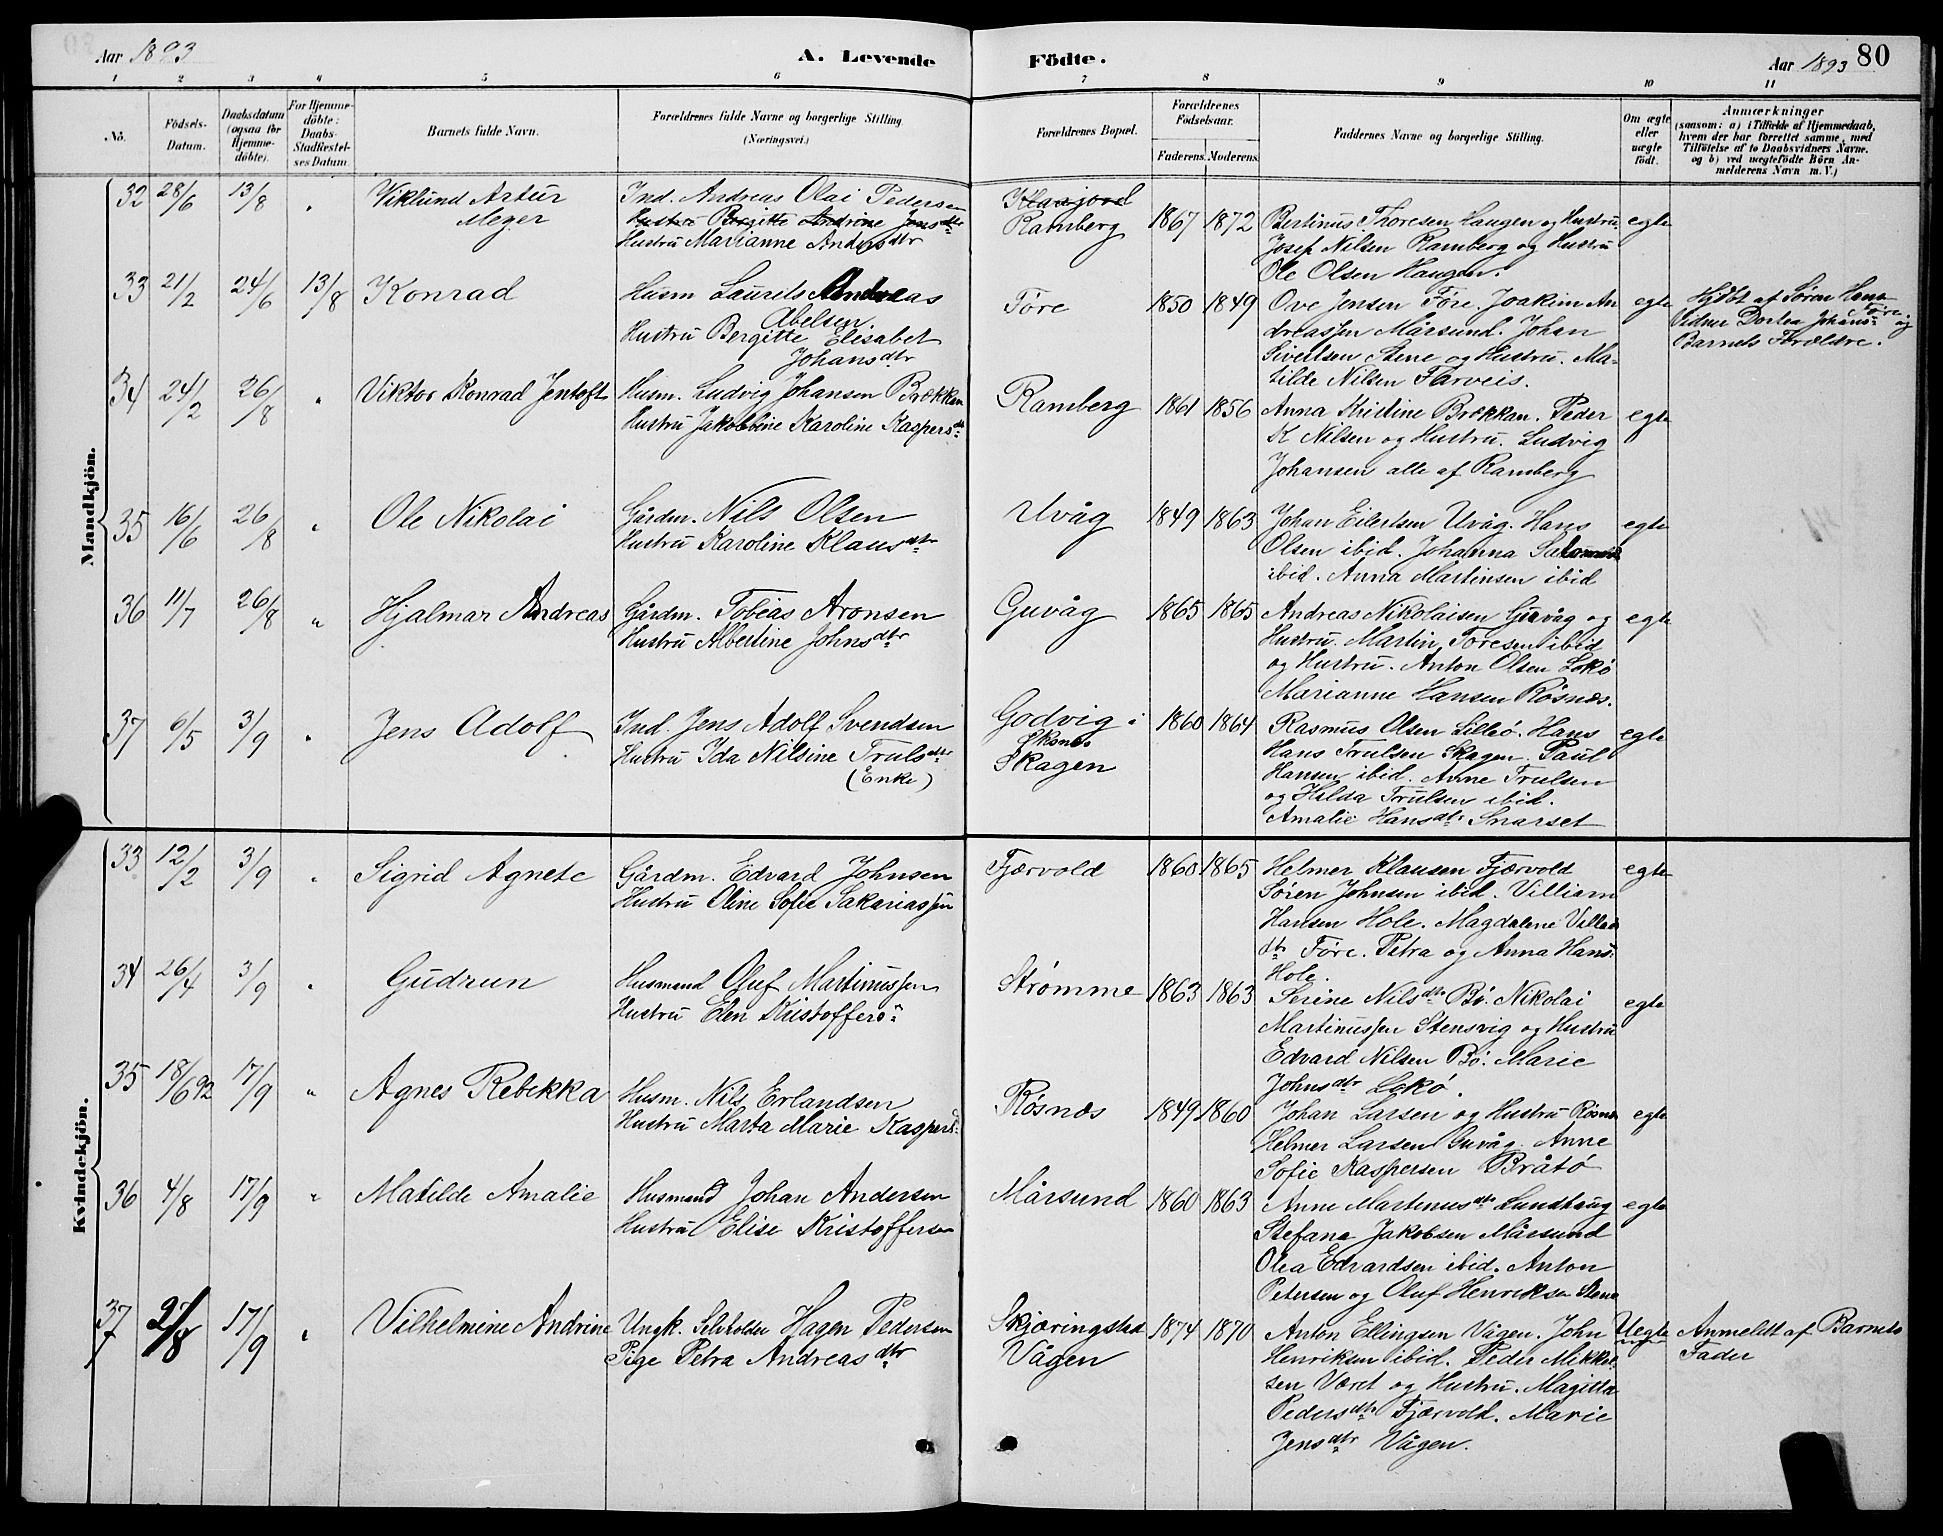 Aar 1893
A. Levende Födte.
Aar 1893
80
1 2 3 4 5 6 7 8 9 10 11
No.
Födsels-Datum.
Daabsdatum (ogsaa for Hjemme-döbte).
For Hjemme-döbte: Daabs-Stadfæstel-ses Datum.
Barnets fulde Navn.
Forældrenes fulde Navne og borgerlige Stilling.
(Næringsvei.)
Forældrenes Bopæl.
Forældrenes Födselsaar.
Faderens. Moderens.
Faddernes Navne og borgerlige Stilling.
Om ægte eller uægte födt.
Anmærkninger
(saasom: a) i Tilfælde af Hjemmedaab,
hvem der har forrettet samme, med
Tilföielse af to Daabsvidners Navne.
og b) ved uægtefödte Börn An-
melderens Navn m. V.)
Mandkjön.
32 28/6 13/8 " Viklund Artur Meyer
Ind. Andreas Olai Pedersen
Hustru Bergitte Andrine Jensdtr
Hustru Marianne Andersdtr
Klaujord
Ramberg
1867 1872
Bertinus Thoresen Haugen og Hustru
Josef Nilsen Ramberg og Hustru
Ole Olsen Haugen.
egte
33 21/2 24/6 13/8 Konrad
Husm Laurits Andreas
Abelsen.
Hustru Bergitte Elisabet
Johansdtr
Føre
1850 1849
Ove Jensen Føre. Joakim An
dreassen Mårsund. Johan
Sivertsen Stene og Hustru. Ma-
tilde Nilsen Farveis.
egte
Hjdbt af Søren Hans
Føre.
Vidner Dortea Johans- og
Barnets Forældre.
34 24/2 26/8 " Viktor Konrad Jentoft
Husm. Ludvig Johansen Brækkan
Hustru Jakobbine Karoline Kaspersdtr
Ramberg
1861 1856
Anna Kristine Brækkan. Peder
K Nilsen og Hustru. Ludvig
Johansen alle af Ramberg
egte
35 16/6 26/8 " Ole Nikolai
Gårdm. Nils Olsen
Hustru Karoline Klausdtr
Uvåg
1849 1863
Johan Eilertsen Uvåg. Hans
Olsen ibid. Johanna
ibid. Anna Martinsen ibid
egte
36 11/7 26/8 " Hjalmar Andreas
Gårdm. Tobias Aronsen
Hustru Albertine Johnsdtr
Guvåg
1865 1865
Andreas Nikolaisen Guvåg og
Hustru. Martin Toresen ibid
og Hustru. Anton Olsen Lokø
Marianne Hansen Røsnæs.
egte
37 6/5 3/9 " Jens Adolf
Ind. Jens Adolf Svendsen
Hustru Ida Nilsine Trulsdtr
(Enke)
Godvig i
Skagen
1860 1864
Rasmus Olsen Lilleø. Hans
Hans Trulsen Skagen. Paul
Hansen ibid. Anne Trulsen
og Hilda Trulsen ibid.
Amalie Hansdtr Snarset
egte
Kvindekjön.
33 12/2 3/9 " Sigrid Agnete
Gårdm. Edvard Johnsen
Hustru Oline Sofie Sakariassen
Fjærvold
1860 1865
Helmer Klausen Fjærvold
Søren Johnsen ibid. Villiam
Hansen Hole. Magdalene Villa
dtr Føre. Petra og Anna Hans-
Hole.
egte
34 26/4 3/9 " Gudrun
Husmand Oluf Martinussen
Hustru Elen Kristoffers"
Strømme
1863 1863
Serine Nilsdtr Bø. Nikolai
Martinussen Stensvig og Hustru
Edvard Nilsen Bø. Marie
Johnsdtr Lokø.
egte
35 18/6 92 17/9 " Agnes Rebekka
Husm. Nils Erlandsen
Hustru Marta Marie Kaspers-
Røsnæs
1849 1860
Johan Larsen og Hustru Røsnæs
Helmer Larsen Guvåg. Anne
Sofie Kaspersen Bråtø
egte
36 4/8 17/9 " Matilde Amalie
Husmand Johan Andersen
Hustru Elise Kristoffersen
Mårsund
1860 1863
Anne Martinusdtr Lundhaug
Stefana Jakobsen Mårsund
Olea Edvardsen ibid. Anton
Petersen og Oluf Henriksen Stene
egte
37 2/8 17/9 " Vilhelmine Andrine
Ungk. Selvholder Hagen Pedersen
Pige Petra Andreasdtr
Skjæringstad
Vågen
1874 1870
Anton Ellingsen Vågen. John
Henriksen ibid. Peder Mikkel-
sen Været og Hustru. Magitta
Pedersdtr Fjærvold. Marie
Jensdtr Vågen.
Uegte
Anmeldt af Barnets
Fader